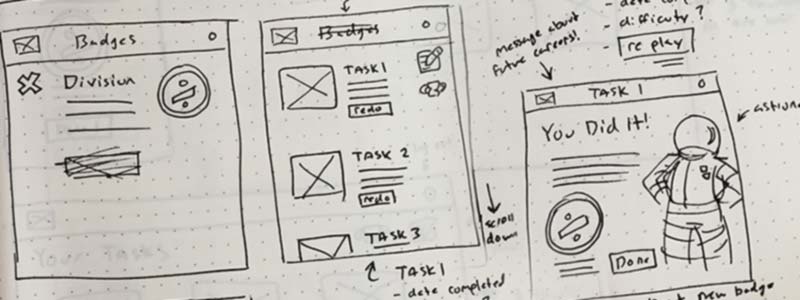 Badges
Division
Badges
TASK 1
redo
TASK 2
redo
TASK 3
scroll
down
TASK 1
- date completed
message about
future careers!
- difficulty?
- replay
TASK 1
You Did It!
Done
new badge